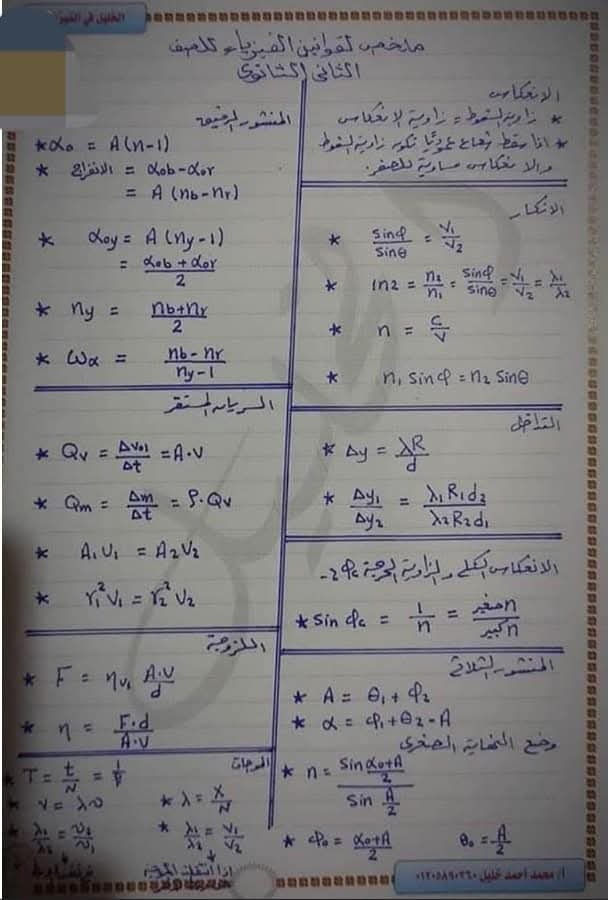 الخليل في الفيزياء
ملخص لقوانين الفيزياء للصف
الثاني الثانوي
الانعكاس
* زاوية السقوط = زاوية الانعكاس
* اذا سقط شعاع عموديًا تكون زاوية السقوط
والانعكاس مساوية للصفر.
الانكسار
* sinφ/sinθ = V₁/V₂
* 1n2 = n₂/n₁ = sinφ/sinθ = V₁/V₂ = λ₁/λ₂
* n = C/V
* n₁ sinφ = n₂ sinθ
التداخل
* Δy = λR/d
* Δy₁/Δy₂ = λ₁R₁d₂/λ₂R₂d₁
الانعكاس الكلي والزاوية الحرجة φc :-
* sin φc = 1/n = nصغير/nكبير
المنشور الثلاثي
* A = θ₁ + φ₂
* α = φ₁ + θ₂ - A
وضع النهاية الصغرى
* n = sin (αo+A)/2 / sin A/2
* φo = (αo+A)/2 θo = A/2
المنشور الرقيق
* αo = A(n-1)
* الانفراج = αob - αor
= A (nb - nr)
* αoy = A (ny-1)
= (αob + αor)/2
* ny = (nb+nr)/2
* ωα = (nb - nr)/(ny-1)
السريان المستقر
* Qv = ΔVol/Δt = A.V
* Qm = Δm/Δt = ρ.Qv
* A₁V₁ = A₂V₂
* r₁²V₁ = r₂²V₂
اللزوجة
* F = ηvs A.V/d
* η = F.d/A.V
الموجات
* T = t/N = 1/ν
* V = λν * λ = X/N
* λ₁/λ₂ = ν₂/ν₁ * λ₁/λ₂ = V₁/V₂
اذا انتقلت الموجة
أ/ محمد احمد خليل